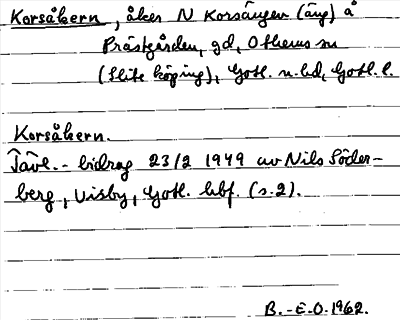 Korsåkern, åker N Korsängen (äng) å
Prästgården, gd, Othems sn
(Slite köping), Gotl. n. hd, Gotl. l.
Korsåkern.
Tävl. - bidrag 23/2 1949 av Nils Söder-
berg, Visby, Gotl. hbf. (s. 2).
B.-E.O. 1962.